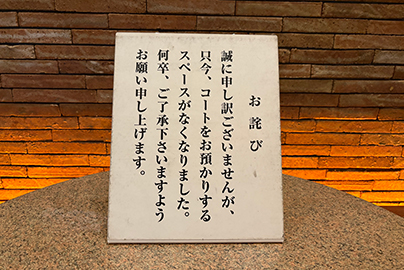 お詫び
誠に申し訳ございませんが、
只今、コートをお預かりする
スペースがなくなりました。
何卒、ご了承下さいますよう
お願い申し上げます。